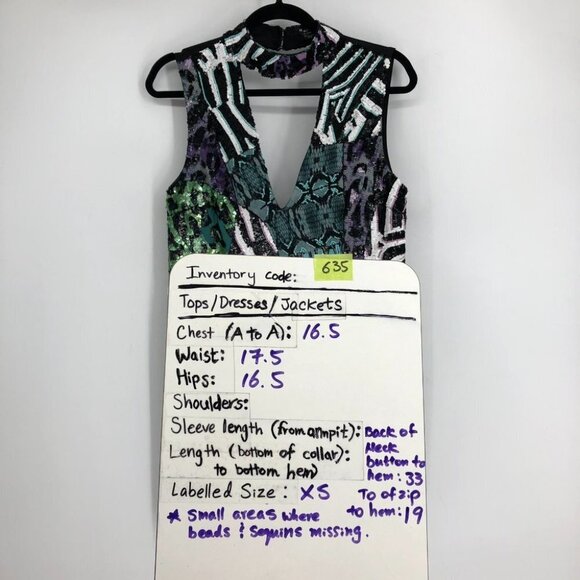 Inventory code: 635
Tops/Dresses/Jackets
Chest (A to A): 16.5
Waist: 17.5
Hips: 16.5
Shoulders:
Sleeve length (from armpit):
Length (bottom of collar):
to bottom hem)
Back of
Neck
button to
hem: 33
To of zip
to hem: 19
Labelled Size: XS
* Small areas where
beads & Sequins missing.